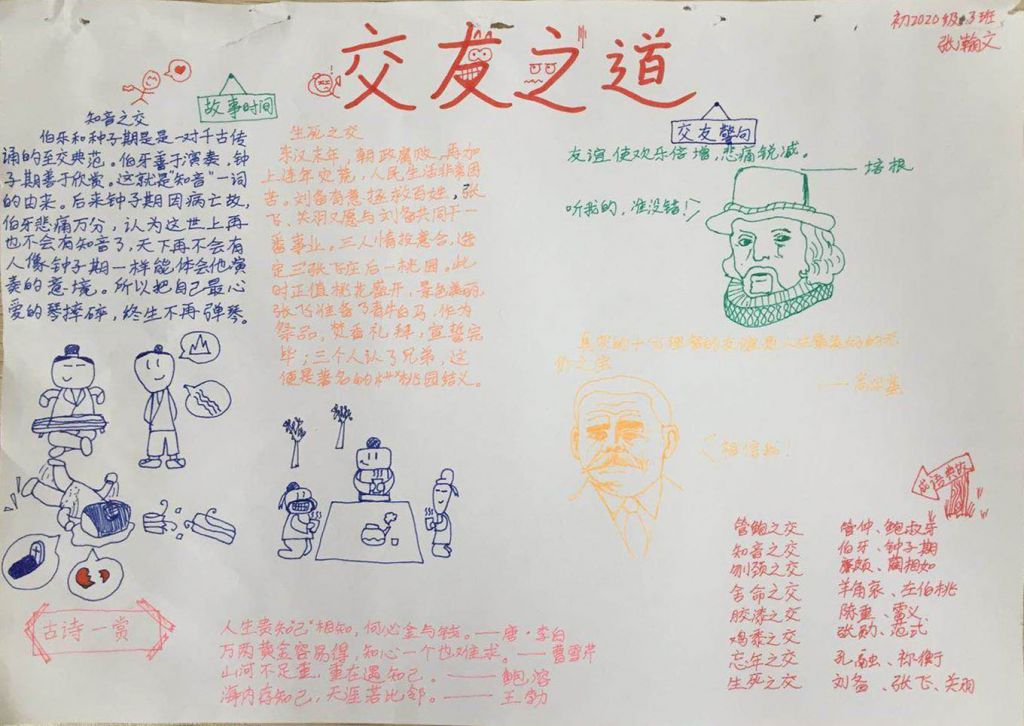 初2020级.3班
张瀚文
交友之道
故事时间
知音之交
伯乐和种子期是是一对千古传
诵的至交典范。伯牙善于演奏，钟
子期善于欣赏。这就是"知音"一词
的由来。后来钟子期因病亡故，
伯牙悲痛万分，认为这世上再
也不会有知音了，天下再不会有
人像钟子期一样能体会他演
奏的意境。所以把自己最心
爱的琴摔碎，终生不再弹琴。
生死之交
东汉末年，朝政腐败，再加
上连年灾荒，人民生活非常困
苦。刘备有意拯救百姓，张
飞、关羽又愿与刘备共同干一
番事业。三人情投意合，选
定三张飞庄后一桃园。此
时正值桃花盛开，景色美丽，
张飞准备了青牛白马，作为
祭品，焚香礼拜，宣誓完
毕；三个人认了兄弟，这
便是著名的桃园结义。
交友警句
友谊使欢乐倍增，悲痛锐减。
培根
听我的，准没错！
真实的十分理智的友谊是人生最美好的无
价之宝
——高尔基
相信我！
成语典故
管鲍之交 管仲、鲍叔牙
知音之交 伯牙、钟子期
刎颈之交 廉颇、蔺相如
舍命之交 羊角哀、左伯桃
胶漆之交 陈重、雷义
鸡黍之交 张劭、范式
忘年之交 孔融、祢衡
生死之交 刘备、张飞、关羽
古诗一赏
人生贵知己"相知，何必金与钱。——唐·李白
万两黄金容易得，知心一个也难求。——曹雪芹
山河不足重，重在遇知己。——鲍溶
海内存知己，天涯若比邻。——王勃